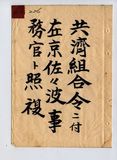 共濟組合令ニ付
在京佐々波事
務官ト照複